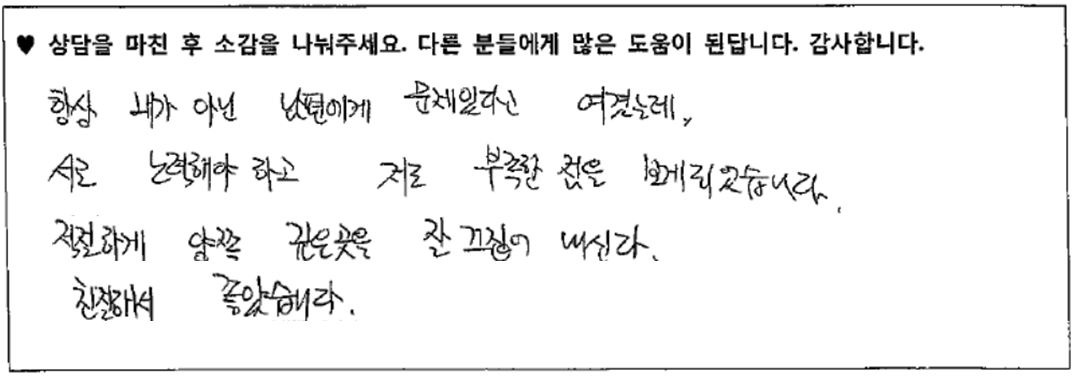 ♥ 상담을 마친 후 소감을 나눠주세요. 다른 분들에게 많은 도움이 된답니다. 감사합니다.
항상 내가 아닌 남편에게 문제있다고 여겼는데,
서로 노력해야 하고 저도 부족한 점을 보게되었습니다.
적절하게 양쪽 깊은곳을 잘 끄집어 내신다.
친절해서 좋았습니다.